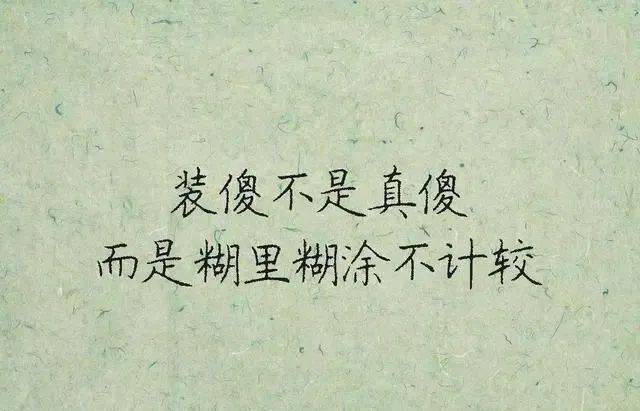 装傻不是真傻
而是糊里糊涂不计较